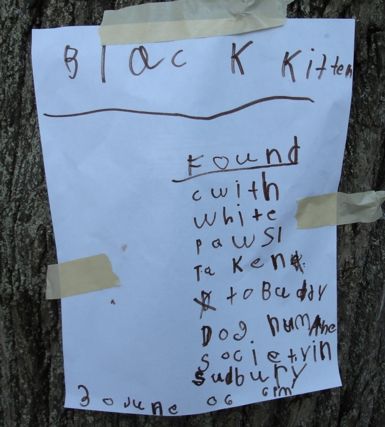 Black Kitten
Found
cwith
white
Paws)
Taken
to Buddy
Dog Humane
Societyin
Sudbury
3 June 06